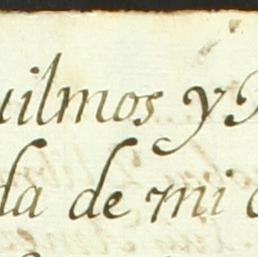 uilmos y
da de mi